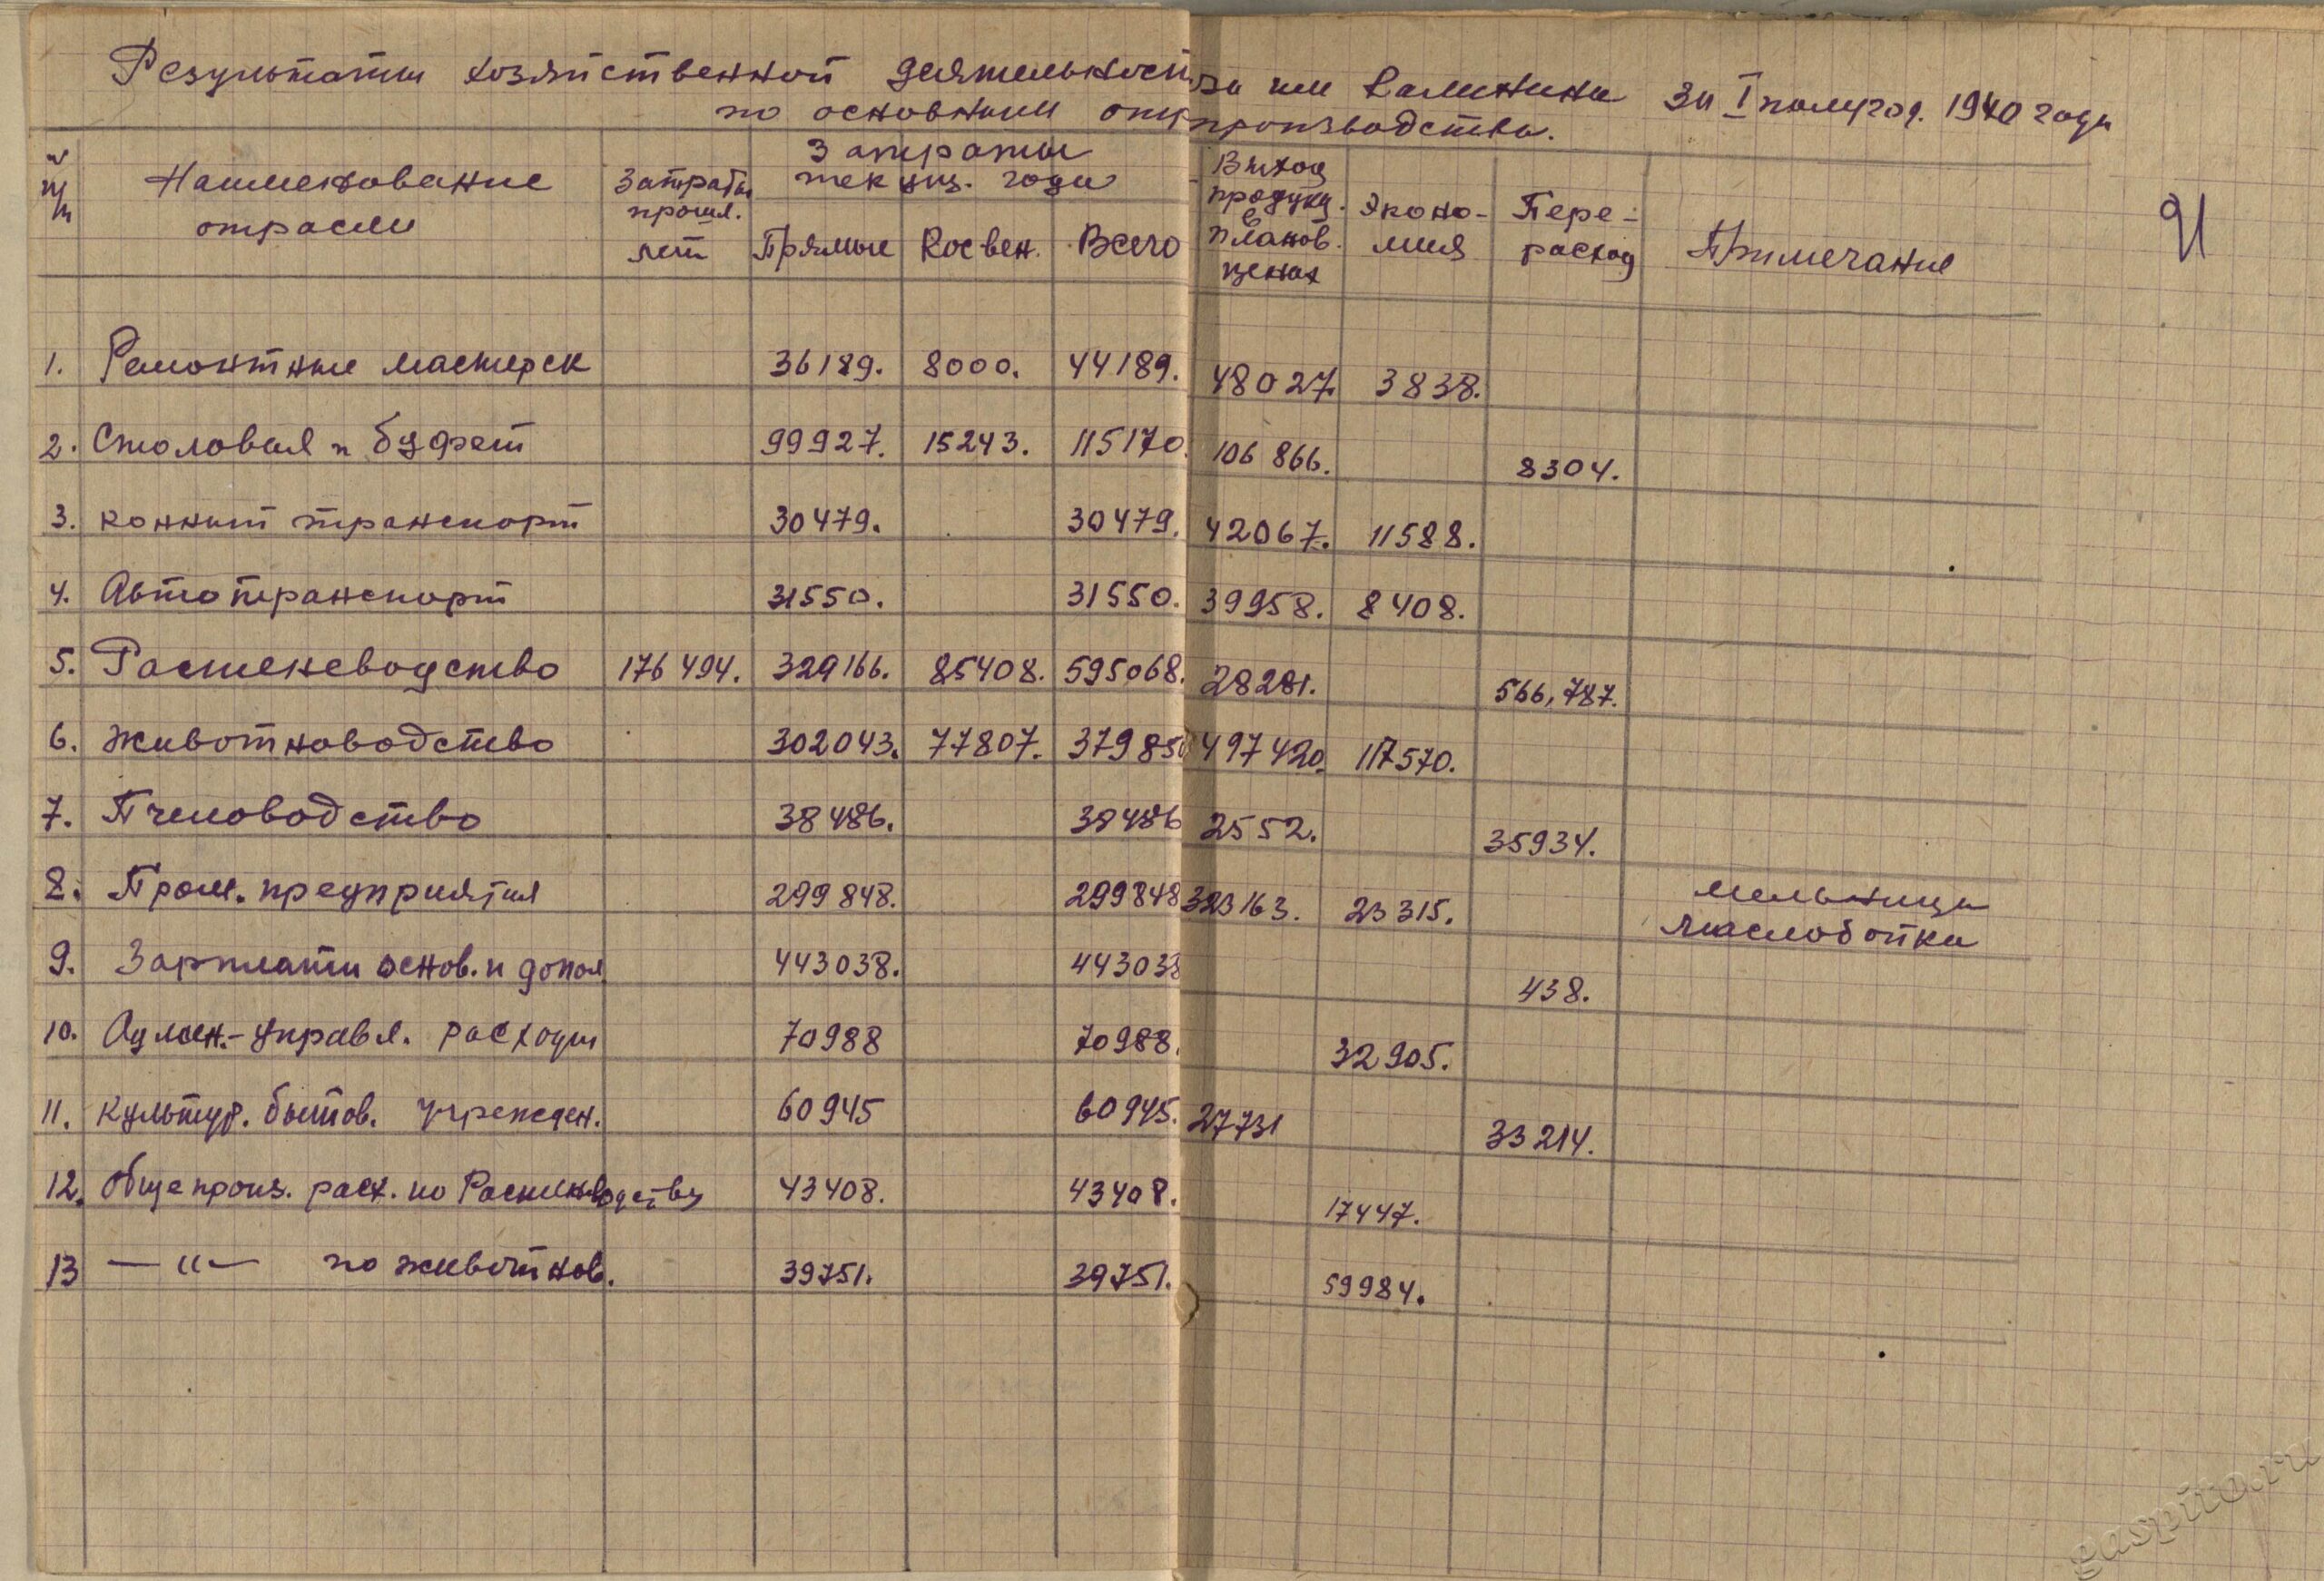 Результаты хозяйственной деятельност за им Калинина за I полугод. 1940 года
по основным отр производства.
№ п/п Наименование отрасли Затраты прошл. лет Затраты текущ. года Прямые Косвен. Всего Выход продукц. в планов. ценах Эконо-мия Пере-расход Примечание
91
1. Ремонтные мастерск 36189. 8000. 44189. 48027 3838.
2. Столовая и буфет 99927. 15243. 115170 106 866. 8304.
3. Конный транспорт 30479. 30479. 42067. 11588.
4. Автотранспорт 31550. 31550. 39958. 8408.
5. Растеневодство 176 494. 329166. 85408. 595068. 28281. 566,787.
6. Животноводство 302043. 77807. 379850 497420. 117570.
7. Пчеловодство 38486. 38486 2552. 35934.
8. Пром. предприятия 299848. 299848 323163. 23315. мельница маслобойка
9. Зарплаты основ. и допол 443038. 443038 438.
10. Админ.-управл. расходы 70988 70988. 32905.
11. Культур. бытов. учрежден. 60945 60945. 27731 33214.
12. Общепроиз. расх. по Растеневодству 43408. 43408. 17447.
13 — " — по животнов. 39751. 39751. 59984.
gaspito.ru